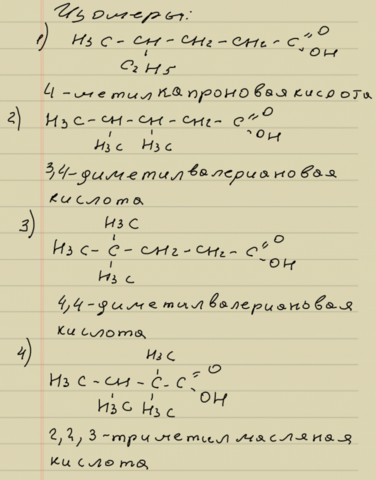 Изомеры:
1) H3C – CH – CH2 – CH2 – C = O
OH
C2H5
4-метилкапроновая кислота
2) H3C – CH – CH – CH2 – C = O
OH
H3C H3C
3,4-диметилвалериановая
кислота
3) H3C
H3C – C – CH2 – CH2 – C = O
OH
H3C
4,4-диметилвалериановая
кислота
4) H3C
H3C – CH – C – C = O
OH
H3C H3C
2,2,3-триметилмасляная
кислота